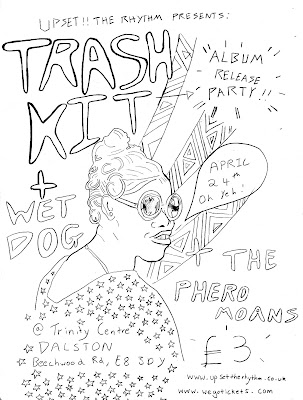 UPSET!! THE RHYTHM PRESENTS:
TRASH
KIT
"ALBUM
RELEASE
PARTY!!"
+
WET
DOG
APRIL
24th
Oh Yeh!
+ THE
PHERO
MOANS
@ Trinity Centre
DALSTON
Beechwood Rd, E8 3DY
£3
www.upsettherhythm.co.uk
www.wegottickets.com